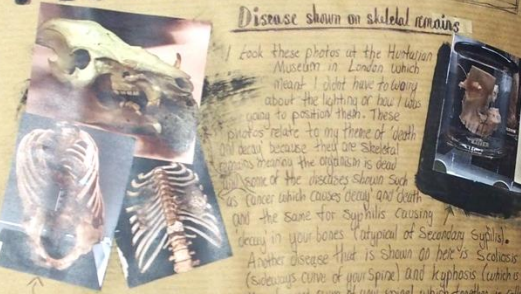 Disease shown on skeletal remains
I took these photos at the Hunterian
Museum in London which
meant I didnt have to worry
about the lighting or how I was
going to position them. These
photos relate to my theme of 'death
and decay' because they are skeletal
remains meaning the organism is dead
and some of the diseases shown such
as cancer which causes decay and death
and the same for Syphilis causing
'decay' in your bones (atypical of Secondary Syplis).
Another disease that is shown on here is Scoliosis
(sideways curve of your spine) and kyphosis (which is